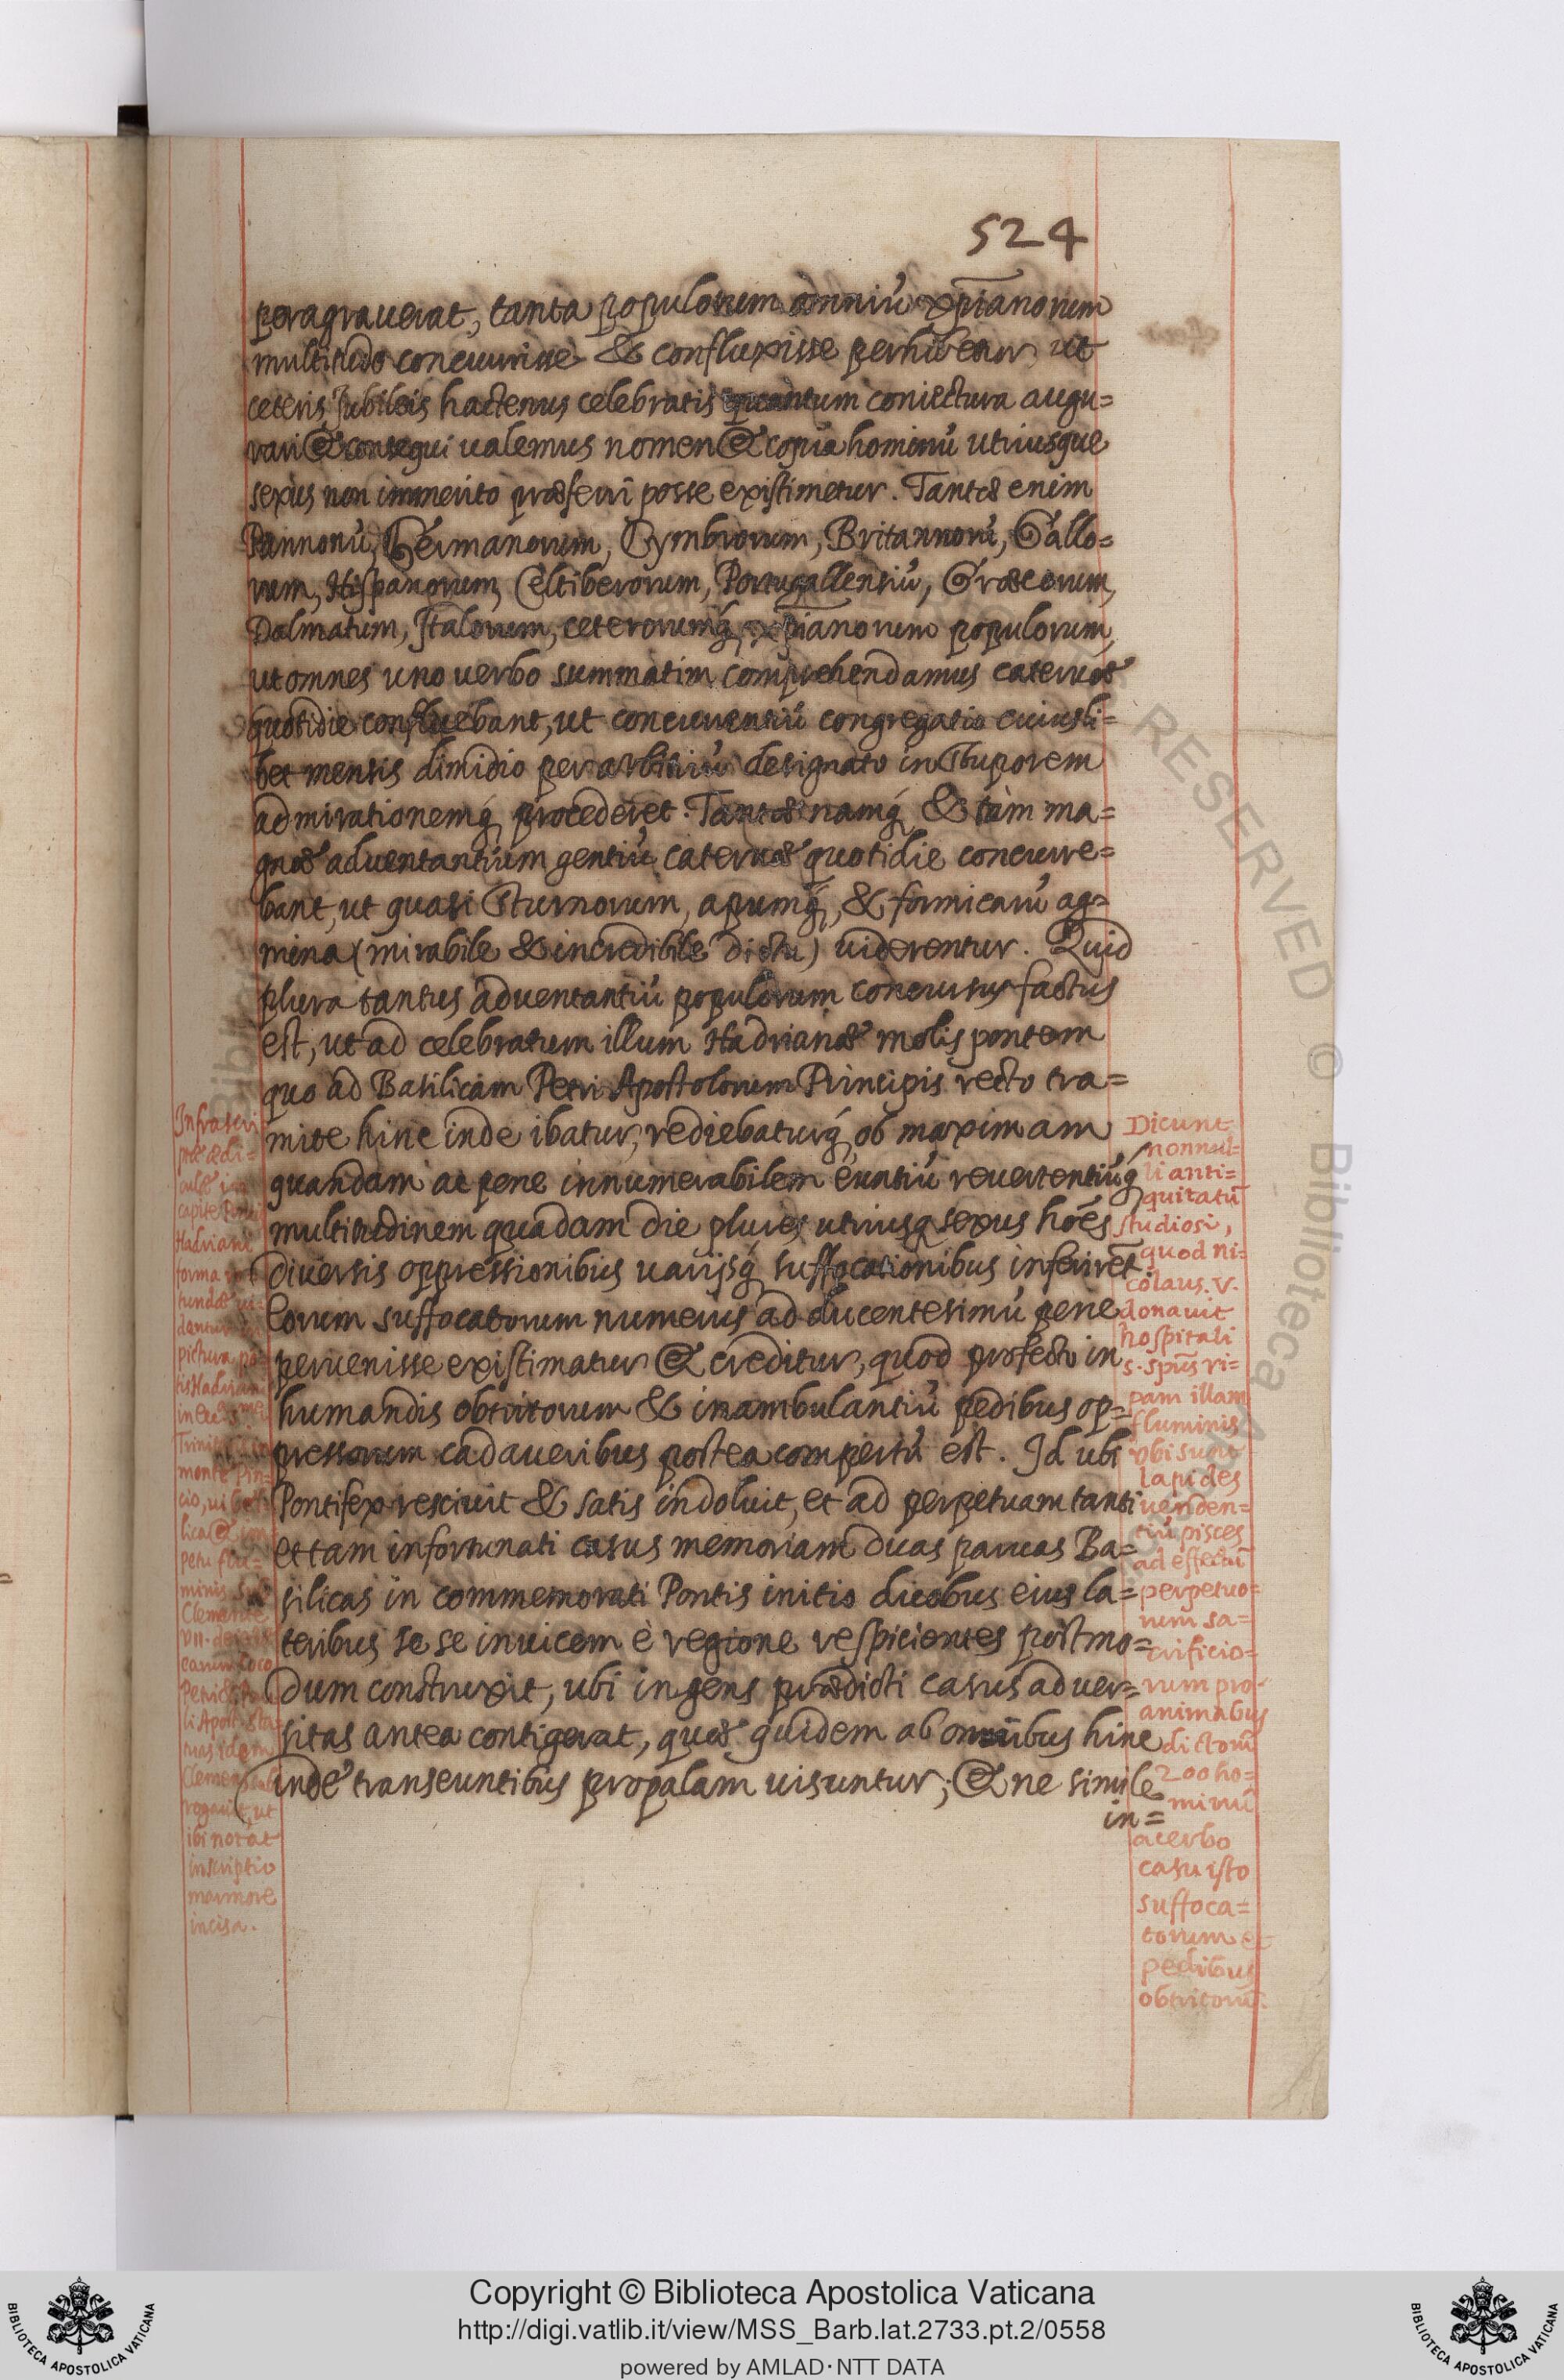 524
peragrauerat, tanta populorum omniū xp̄ianorum
multitudo concurrisse & confluxisse perhibetur, ut
ceteris Jubileis hactenus celebratis quantum coniectura augu=
rari & consequi ualemus nomen & copia hominū utriusque
sexus non immerito præferri posse existimetur. Tantæ enim
Pannonū, Germanorum, Cymbrorum, Britannorū, Gallo=
rum, Hispanorum, Celtiberorum, Portugallensiū, Græcorum,
Dalmatum, Italorum, ceterorumq́, xp̄ianorum populorum,
ut omnes uno uerbo summatim comprehendamus cateruæ
quotidie confluebant, ut concurrentiū congregatio cuiusli=
bet mensis dimidio per arbitriū designato in stuporem
admirationemq́, procederet. Tantæ namq́, & tàm ma=
gnæ aduentantium gentiū cateruæ quotidie concurre=
bant, ut quasi sturnorum, apumq́, & formicarū ag=
mina (mirabile & incredibile dictu) uiderentur. Quid
plura tantus aduentantiū populorum concursus factus
est, ut ad celebratum illum Hadrianæ molis pontem
quo ad Basilicam Petri Apostolorum Principis recto tra=
mite hinc inde ibatur, rediebaturq́, ob maximam
quandam ac pene innumerabilem euntiū reuertentiūq́
multitudinem quadam die plures utriusq́ sexus hōēs
diuersis oppressionibus uarijsq́, suffocationibus inferirēt.
Eorum suffocatorum numerus ad ducentesimū pene
peruenisse existimatur & creditur, quod profecto in
humandis obtritorum & inambulantiū pedibus op=
pressorum cadaueribus postea compertū est. Id ubi
Pontifex resciuit & satis indoluit, et ad perpetuam tanti
et tam infortunati casus memoriam duas paruas Ba=
silicas in commemorati Pontis initio duobus eius la=
teribus se se inuicem è regione respicientes postmo=
dum construxit, ubi ingens prædicti casus aduer=
sitas antea contigerat, quæ quidem ab omnibus hinc
inde transeuntibus propalam uisuntur; & ne simile
in=
Infrascri
ptæ ædi=
culæ in
capite Pontis
Hadriani
forma ro
tundæ ui=
dentur in
pictura po
tis Hadriani
in Ecc. S.
Trinit
monte Pin=
cio, ui bel
lica & im
petu flu=
minis
Clemente
VII
earum loco
Petri & Pau
li Apost. sta=
tuas idem
Clemens
rogauit, ut
ibi notat
inscriptio
marmore
incisa.
Dicunt
nonnul=
li anti=
quitatū
studiosi,
quod ni=
colaus. V.
donauit
hospitali
S. Spūs ri=
pam illam
fluminis
ubi sunt
lapides
uenden=
tiū pisces
ad effectū
perpetuo=
rum sa=
crificio=
rum pro
animabus
dictorū
200 ho=
minū
acerbo
casu isto
suffoca=
torum et
pedibus
obtritorū.
Copyright © Biblioteca Apostolica Vaticana
http://digi.vatlib.it/view/MSS_Barb.lat.2733.pt.2/0558
powered by AMLAD·NTT DATA
BIBLIOTECA APOSTOLICA VATICANA
BIBLIOTECA APOSTOLICA VATICANA